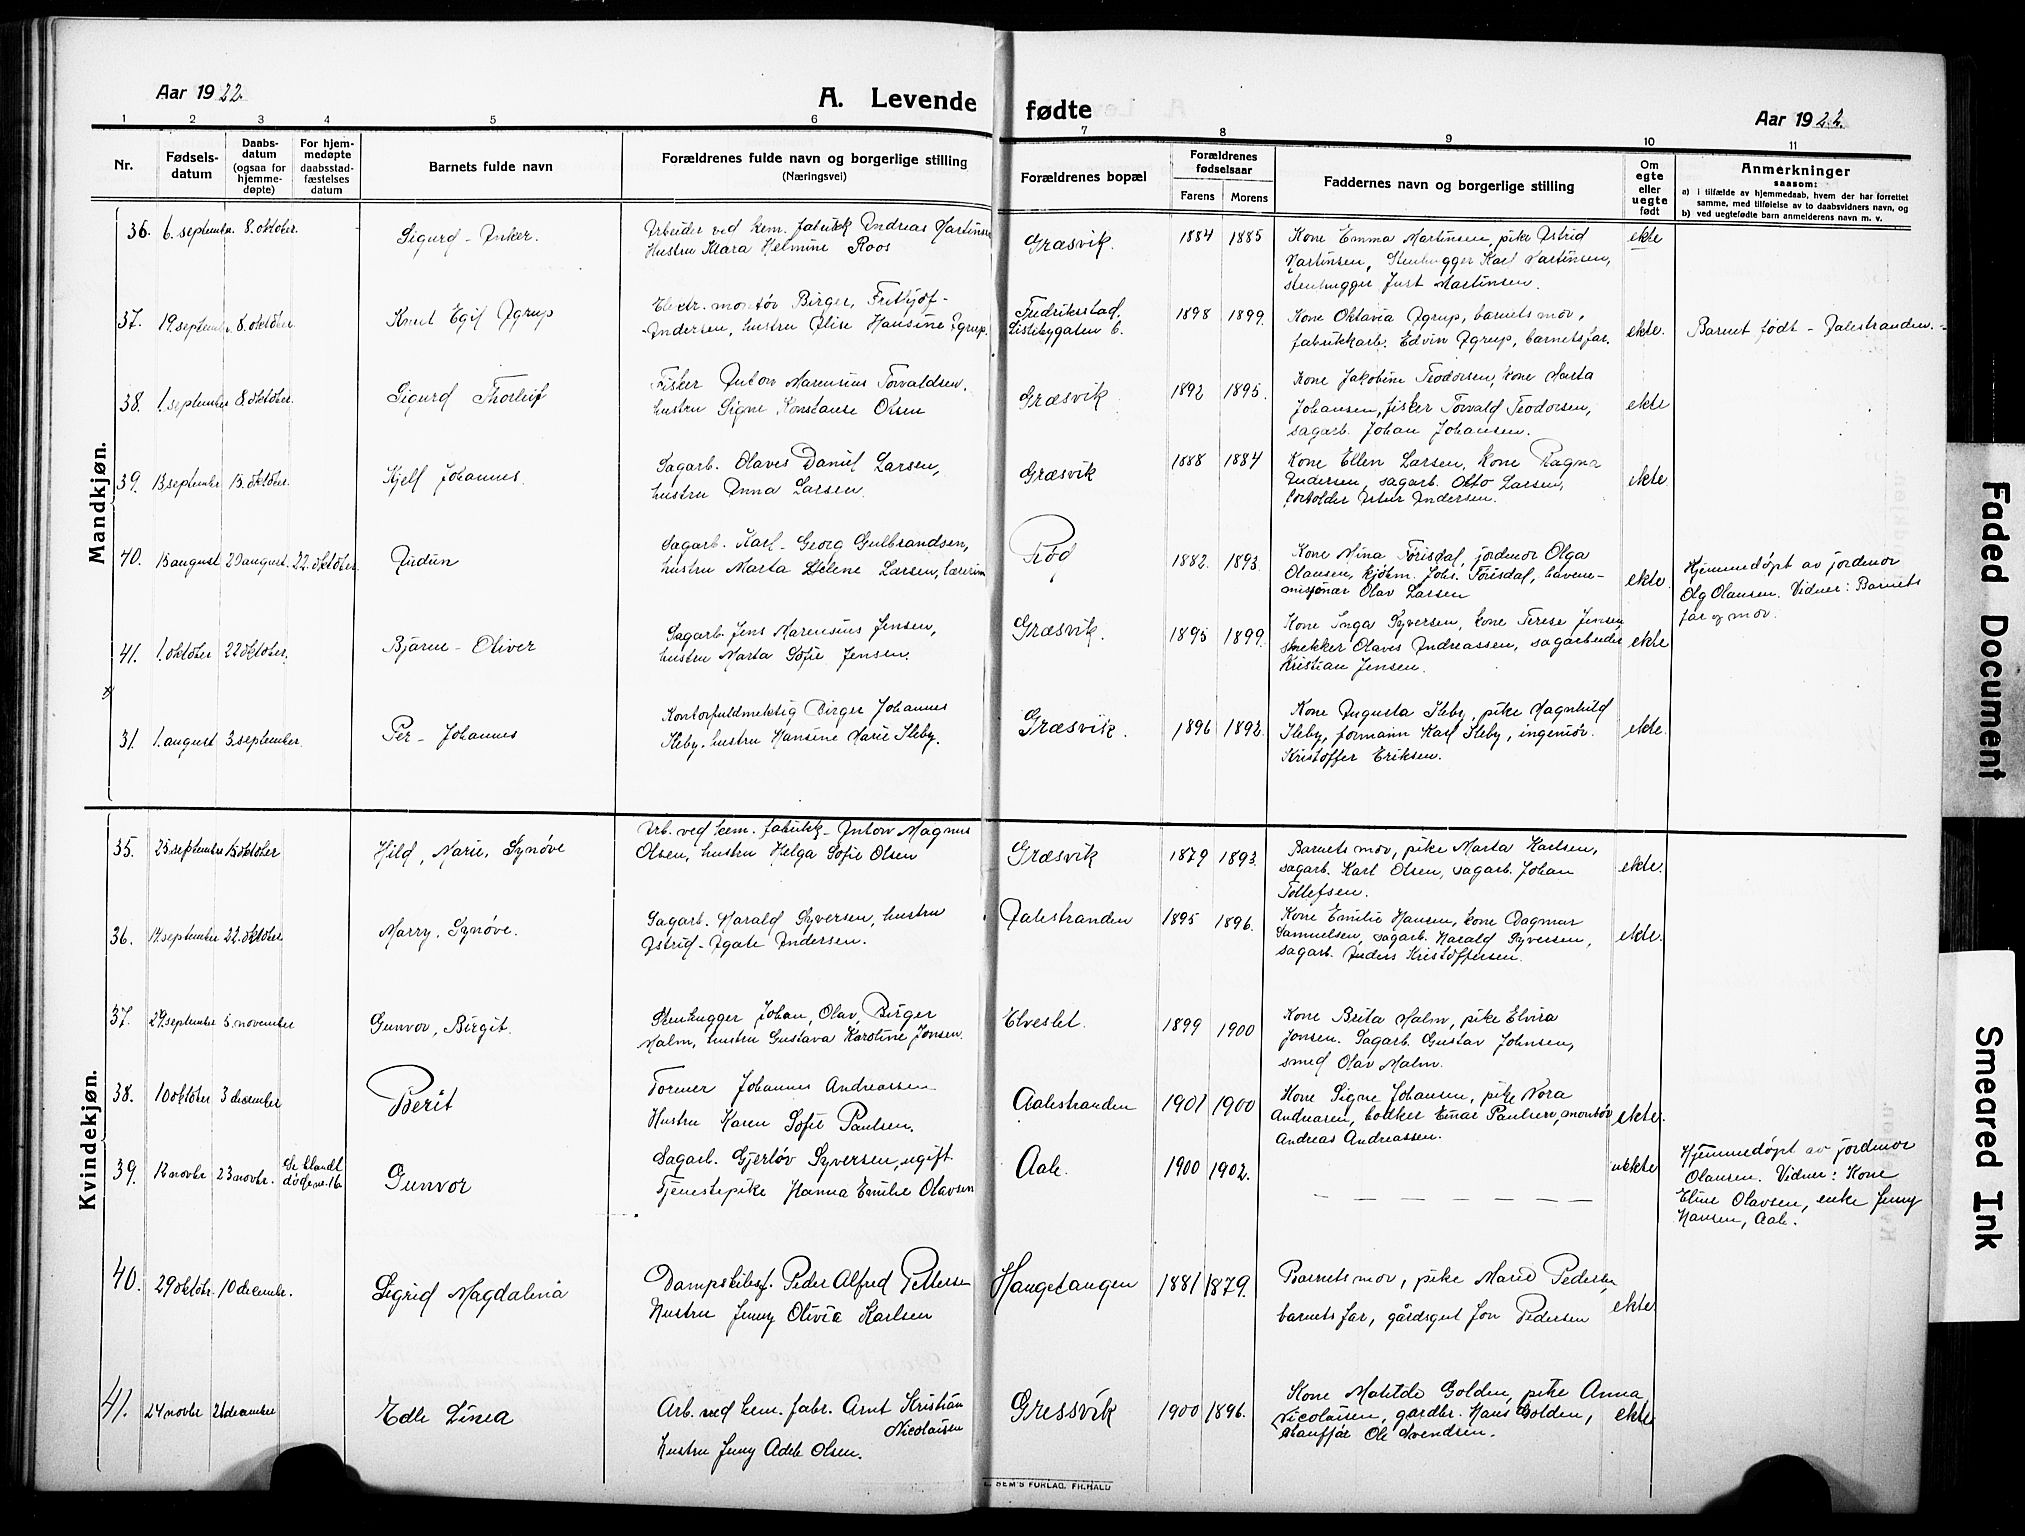 Aar 1922.
A. Levende fødte
Aar 1922.
1 2 3 4 5 6 7 8 9 10 11
Nr.
Fødsels-
datum
Daabs-
datum
(ogsaa for
hjemme-
døpte)
For hjem-
medøpte
daabsstad-
fæstelses
datum
Barnets fulde navn
Forældrenes fulde navn og borgerlige stilling
(Næringsvei)
Forældrenes bopæl
Forældrenes
fødselsaar
Farens Morens
Faddernes navn og borgerlige stilling
Om
egte
eller
uegte
født
Anmerkninger
saasom:
a) i tilfælde av hjemmedaab, hvem der har forrettet
samme, med tilføielse av to daabsvidners navn, og
b) ved uegtefødte barn anmelderens navn m. v.
Mandkjøn.
36. 6. september. 8. oktober.
Sigurd - Anker.
Arbeider ved kem. fabrikk Andreas Martinsen
Hustru Klara Helmine Roos
Græsvik.
1884 1885
Kone Emma Martinsen, pike Astrid
Martinsen, Stenhugger Karl Martinsen,
stenhugger Just Martinsen.
ekte
37. 19. september. 8. oktober.
Knut Egil Agrup
Electr. montør Birger, Fritkjof-
Andersen, hustru Alise Hansine Agrup.
Fredrikstad,
Listebygaten 6.
1898 1899.
Kone Oktavia Agrup, barnets mor,
fabrikkarb. Edvin Agrup, barnets far.
ekte.
Barnet født - Aalestranden.
38. 1. september 8. oktober.
Sigurd Thorleif
Fisker Anton Marensius Torvaldsen.
hustru Signe Konstanse Olsen
Græsvik
1892 1895.
Kone Jakobine Teodorsen, kone Marta
Johansen, fisker Torvald Teodorsen,
sagarb. Johan Johansen.
ekte
39. 13 september 15. oktober.
Kjell Johannes.
Sagarb. Olaves Daniel Larsen,
hustru Anna Larsen.
Græsvik
1888 1884
Kone Ellen Larsen, kone Ragna
Andersen, sagarb. Otto Larsen,
Andersen.
ekte.
40. 15 august 29 august. 22. oktober.
Audun
Sagarb. Karl - Georg Gulbrandsen,
hustru Marta Helene Larsen, lærerin
Rød
1882. 1893.
Kone Nina Tørisdal, jordmor Olga
Olausen, kjøbm. Johs. Tørisdal, havne-
misjonær Olav Larsen
ekte.
Hjemmedøpt av jordmor
Olg Olausen. Vidner: Barnets
far og mor.
41. 1. oktober 22 oktober.
Bjarne - Oliver
Sagarb. Jens Marensius Jensen,
hustru Marta Sofie Jensen.
Græsvik.
1895 1899.
Kone Inga Syversen, kone Terese Jensen
snekker Olaves Andreassen, sagarbeider
Kristian Jensen.
ekte
31. 1. august 3. september.
Per - Johannes
Kontorfuldmektig Birger Johannes
Kleby, hustru Hansine Marie Kleby.
Græsvik.
1896 1892.
Kone Augusta Kleby, pike Magnhild
Kleby, formann Karl Kleby, ingeniør.
Kristoffer Eriksen.
ekte.
Kvindekjøn.
35. 25. september 15 oktober
Hild, Marie, Synøve
Arb. ved kem. fabrikk - Anton Magnus
Olsen, hustru Helga Sofie Olsen
Græsvik
1879 1893.
Barnets mor, pike Marta Karlsen,
sagarb. Karl Olsen, sagarb. Johan
Tollefsen.
ekte.
36. 14. september 22. oktober
Marry, Synøve.
Sagarb. Harald Syversen, hustru
Astrid - Agate Andersen.
Aalestranden
1895 1896.
Kone Emilie Hansen, kone Dagmar
Samuelsen, sagarb. Harald Syversen,
sagarb. Anders Kristoffersen.
ekte.
37. 29. september 5. november
Gunvor, Birgit.
Stenhugger Johan, Olav, Birger
Malm, hustru Gustava Karstine Jonsen.
Elveslet.
1899 1900
Kone Beita Malm, pike Elvira
Jonsen. Sagarb. Gustav Johnsen,
smed Olav Malm.
38. 10 oktober 3 december
Berit
Former Johannes Andreassen
Hustru Karen Sofie Paulsen.
Aalestranden
1901 1900
Kone Signe Johansen, pike Nora
Andreasen, bødker Einar Paulsen, montør
Andreas Andreassen.
ekte.
39. 12 novbr 23 novbr. Se blandt
døde nr. 16.
Gunvor
Sagarb. Gjerløv Syversen, ugift
Tjenestepike Hanna Emilie Olavsen
Aale.
1900 1902.
— — — — — —
uekte
Hjemmedøpt av jordmor
Olausen. Vidner: Kone
Eline Olavsen, enke Jenny
Hansen, Aale.
40. 29 oktobr. 10 december.
Sigrid Magdalena
Dampskibsf. Peder Alfred Pettersen
Hustru Jenny Olivia Karlsen
Hangetangen
1881 1879.
Barnets mor, pike Marie Pedersen,
barnets far, gårdsgut Jon Pedersen
ekte
41. 24 novbr 26 december
Edle Linea
Arb. ved kem. fabr. Arnt Kristian
Nicolaisen
Hustru Jenny Adele Olsen.
Gressvik
1900 1896.
Kone Matilde Golden, pike Anna
Nicolaisen, gardbr. Hans Golden,
Ole Svendsen.
ekte
SEM'S FORLAG, FR.HALD
Faded Document
Smeared Ink